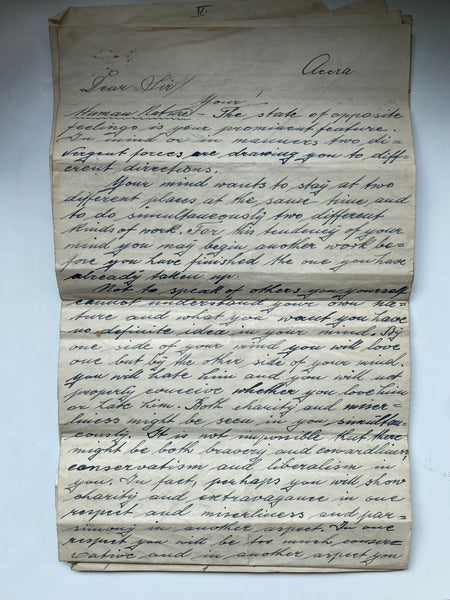 II.
Accra
Dear Sir!
Your
Human Nature - The state of opposite
feelings is your prominent feature.
In mind or in manners two di-
vergent forces are drawing you to diff-
erent directions.
Your mind wants to stay at two
different places at the same time and
to do simultaneously two different
kinds of work. For this tendency of your
mind you may begin another work be-
fore you have finished the one you have
already taken up.
Not to speak of others you yourself
cannot understand your own na-
ture and what you want you have
no definite idea in your mind. By
one side of your mind you will love
one but by the other side of your mind
you will hate him and you will not
properly conceive whether you love him
or hate him. Both charity and miser-
liness might be seen in you simultan-
eously. It is not impossible that there
might be both bravery and cowardliness
conservatism and liberalism in
you. In fact, perhaps you will show
charity and extravagance in one
respect and miserliness and par-
simony in another aspect. In one
respect you will be too much conser-
vative and in another aspect you